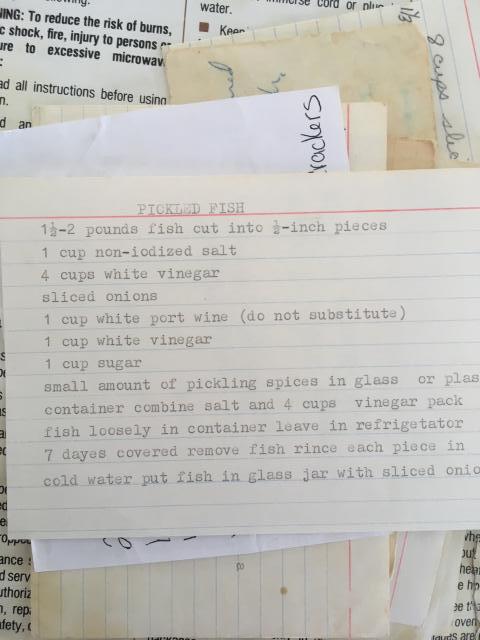 NING: To reduce the risk of burns,
c shock, fire, injury to persons or
ure to excessive microwav
ad all instructions before using
n.
water.
cord or
Keep
8 cups slic
rackers
PICKLED FISH
1½-2 pounds fish cut into ½-inch pieces
1 cup non-iodized salt
4 cups white vinegar
sliced onions
1 cup white port wine (do not substitute)
1 cup white vinegar
1 cup sugar
small amount of pickling spices in glass or plas
container combine salt and 4 cups vinegar pack
fish loosely in container leave in refrigetator
7 dayes covered remove fish rince each piece in
cold water put fish in glass jar with sliced onio